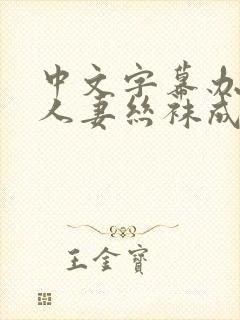 中文字幕办
人妻丝袜成
王金寶